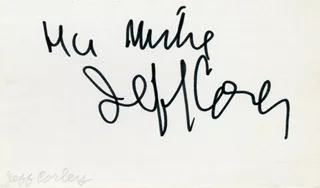 Mike
Jeff Corey
Jeff Corley